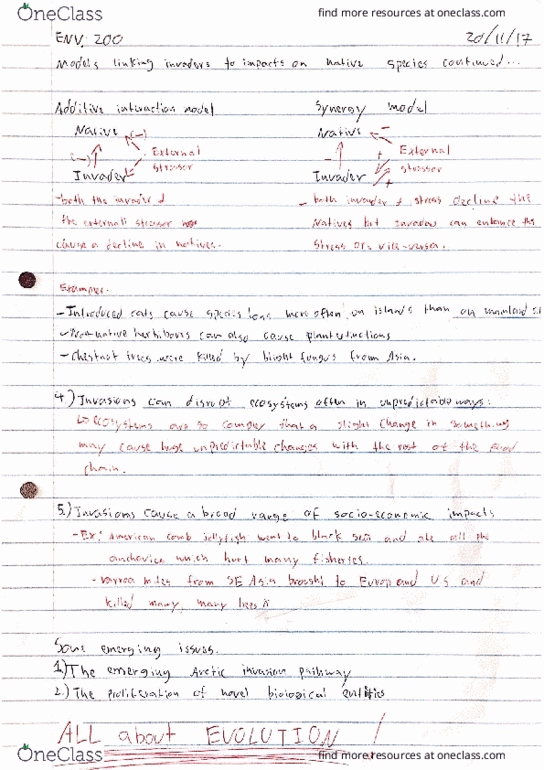 OneClass find more resources at oneclass.com
ENV. 200 20/11/17
Models linking invaders to impacts on native species continued...
Additive interaction model Synergy model
Native (-) Native -
(-) External Stressor - + External Stressor
Invader Invader +
- both the invader & - both invader & stress decline the
the external stressor natives but invader can enhance the
cause a decline in natives. stress or vice-versa.
Examples.
- Introduced cats cause species loss more often on islands than on mainland
- Non-native herbivours can also cause plant extinctions
- Chestnut trees were killed by blight fungus from Asia.
4.) Invasions can disrupt ecosystems often in unpredictable ways:
ecosystems are so complex that a slight change in something
may cause huge unpredictable changes with the rest of the food
chain.
5.) Invasions cause a broad range of socio-economic impacts
- Ex: American comb jellyfish went to black sea and ate all the
anchovies which hurt many fisheries.
- varroa mites from SE Asia brought to Europe and US and
killed many, many bees
Some emerging issues.
1.) The emerging Arctic invasion pathway
2.) The proliferation of novel biological entities
ALL about EVOLUTION !
OneClass find more resources at oneclass.com